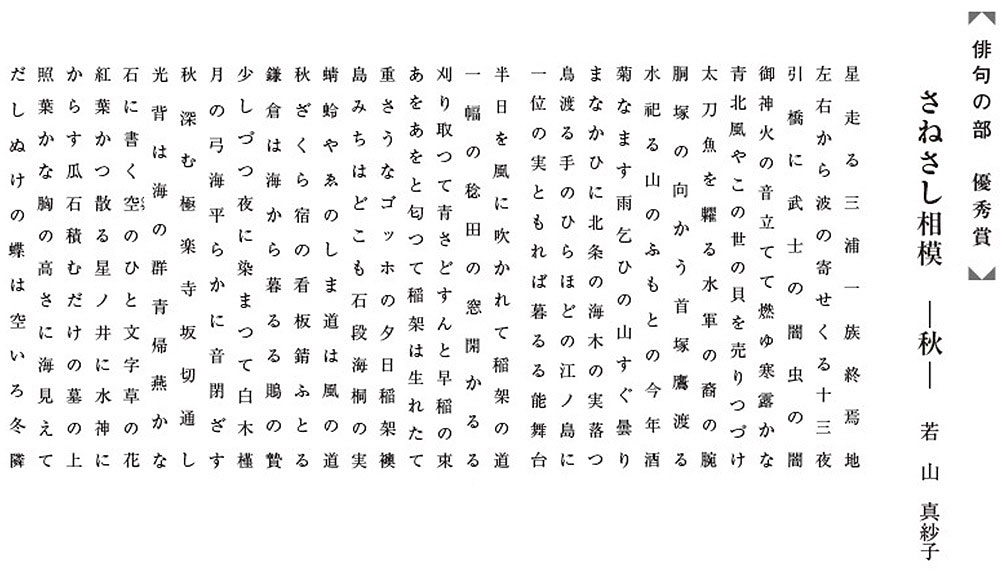 俳句の部　優秀賞
さねさし相模　―秋―　若山　真紗子
星走る三浦一族終焉地
左右から波の寄せくる十三夜
引橋に武士の闇虫の闇
御神火の音立てて燃ゆ寒露かな
青北風やこの世の貝を売りつづけ
太刀魚を糶る水軍の裔の腕
胴塚の向かう首塚鷹渡る
水祀る山のふもとの今年酒
菊なます雨乞ひの山すぐ曇り
まなかひに北条の海木の実落つ
鳥渡る手のひらほどの江ノ島に
一位の実ともれば暮るる能舞台
半日を風に吹かれて稲架の道
一幅の稔田の窓開かるる
刈り取つて青さどすんと早稲の束
あをあをと匂つて稲架は生れたて
重さうなゴッホの夕日稲架襖
島みちはどこも石段海桐の実
蜻蛉やゑのしま道は風の道
秋ざくら宿の看板錆ふとる
鎌倉は海から暮るる鵙の贄
少しづつ夜に染まつて白木槿
月の弓海平らかに音閉ざす
秋深む極楽寺坂切通し
光背は海の群青帰燕かな
石に書く空のひと文字草の花
くう
紅葉かつ散る星ノ井に水神に
からす瓜石積むだけの墓の上
照葉かな胸の高さに海見えて
だしぬけの蝶は空いろ冬隣